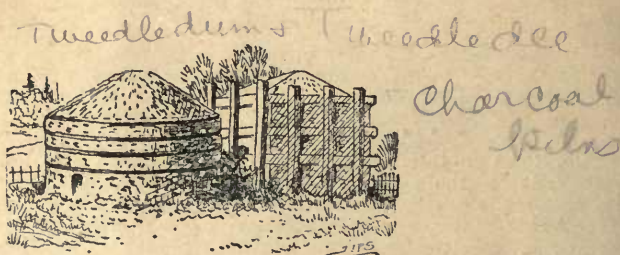 Tweedledum & Tweedledee
Charcoal
kilns